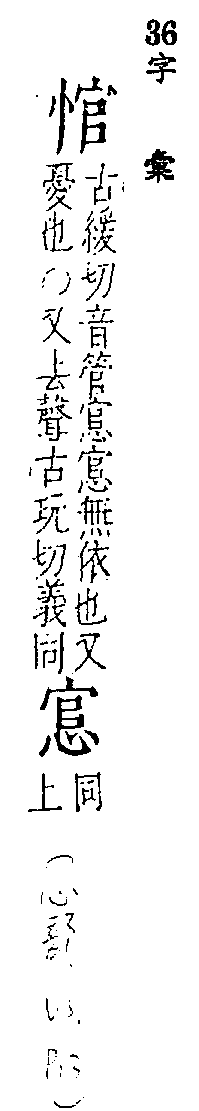 36字彙
悺
古緩切音管悹悹無依也又
憂也○又去聲古玩切義同
悹
同
上